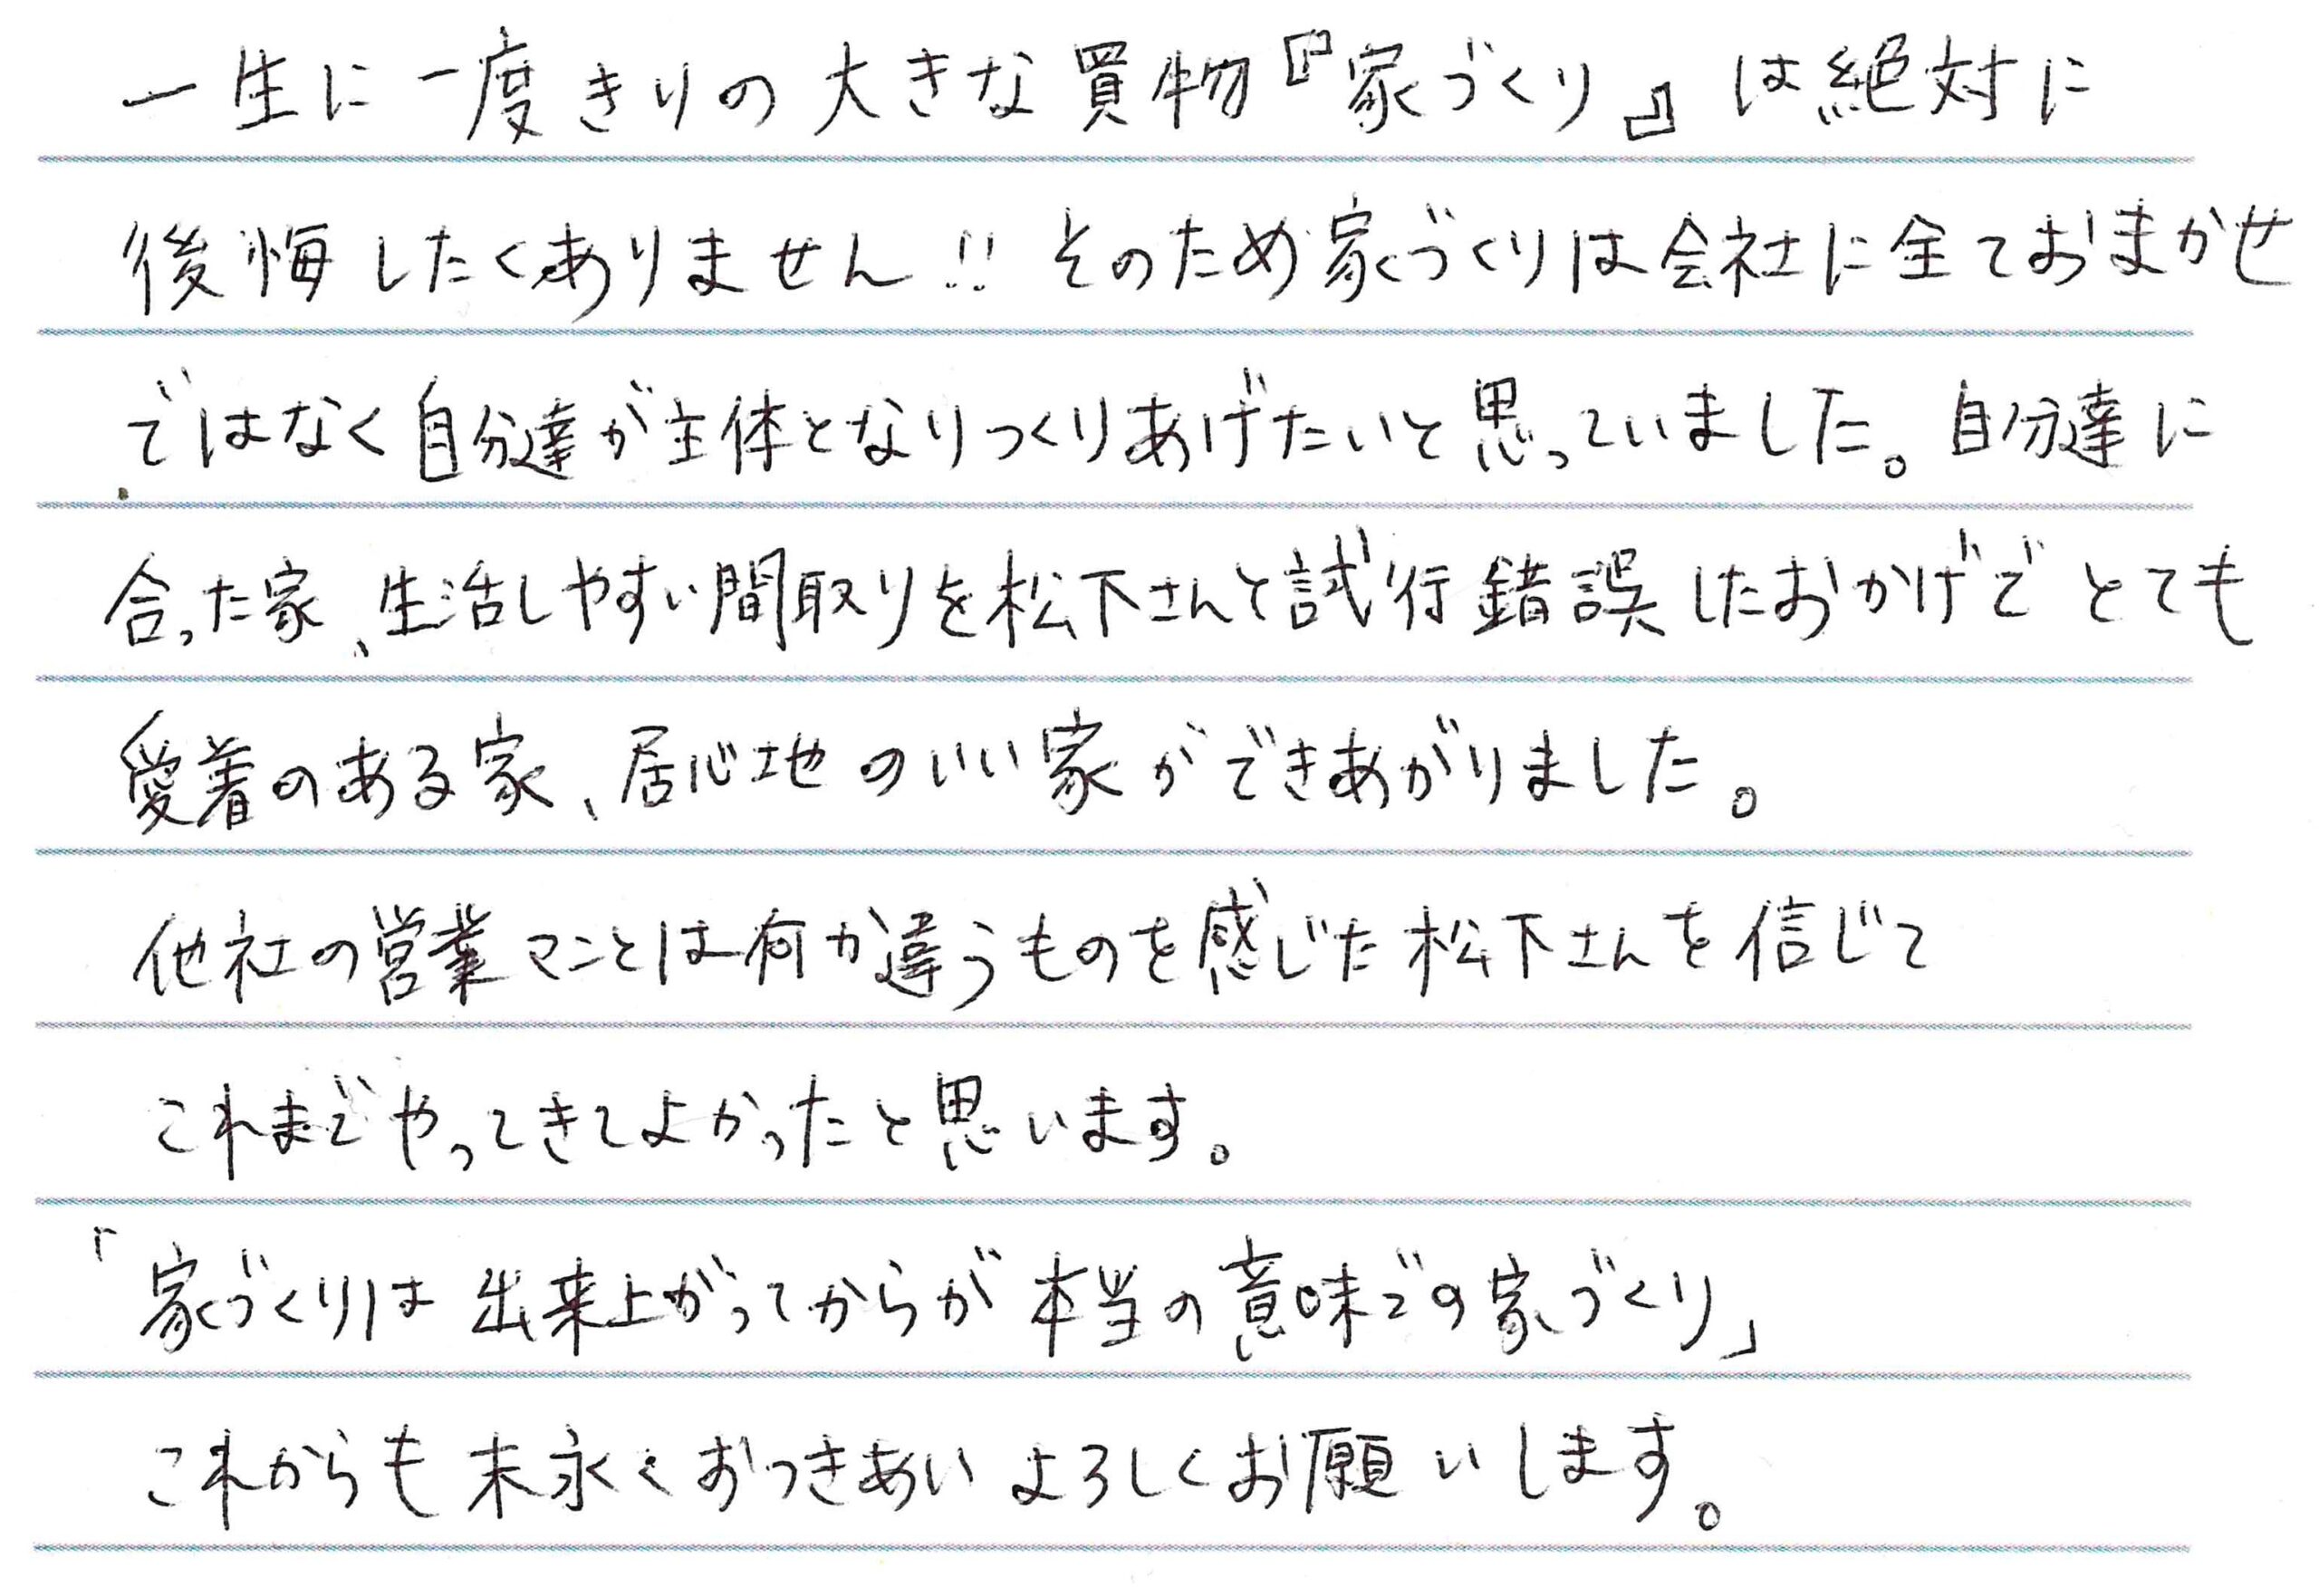 一生に一度きりの大きな買物『家づくり』は絶対に
後悔したくありません!! そのため家づくりは会社に全ておまかせ
ではなく自分達が主体となりつくりあげたいと思っていました。自分達に
合った家、生活しやすい間取りを松下さんと試行錯誤したおかげでとても
愛着のある家、居心地のいい家ができあがりました。
他社の営業マンとは何か違うものを感じた松下さんを信じて
これまでやってきてよかったと思います。
「家づくりは出来上がってからが本当の意味での家づくり」
これからも末永くおつきあいよろしくお願いします。